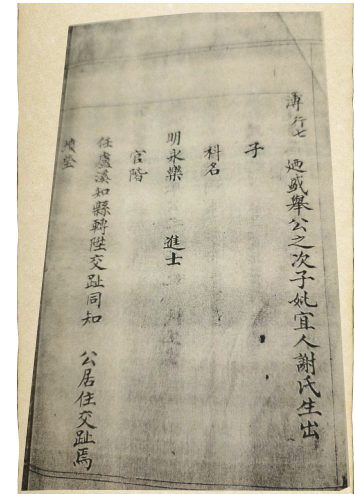 溥行七 廸盛舉公之次子妣宜人謝氏生出
子
科名
明永樂 進士
官階
任盧溪知縣轉陞交趾同知 公居住交趾焉
墳塋